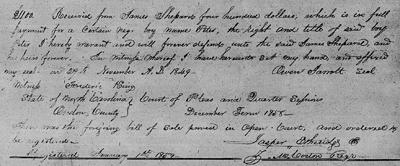 $400. Received from James Shepard four hundred dollars, which is in full
payment for a Certain negro boy name Peter, the right and title of said boy
I hereby warrant and will forever defend unto the said James Shepard, and
his heirs forever. In Witness Whereof I have hereunto set my hand and affixed
my seal on 29th November A.D. 1849. Owen Jarrott Seal
Witness Frederic King
State of North Carolina Court of Pleas and Quarter Sessions
County December Term 1858
Then was the foregoing bill of Sale proved in Open Court, and ordered to
be registered. Jasper Etheridge
Registered January 1st